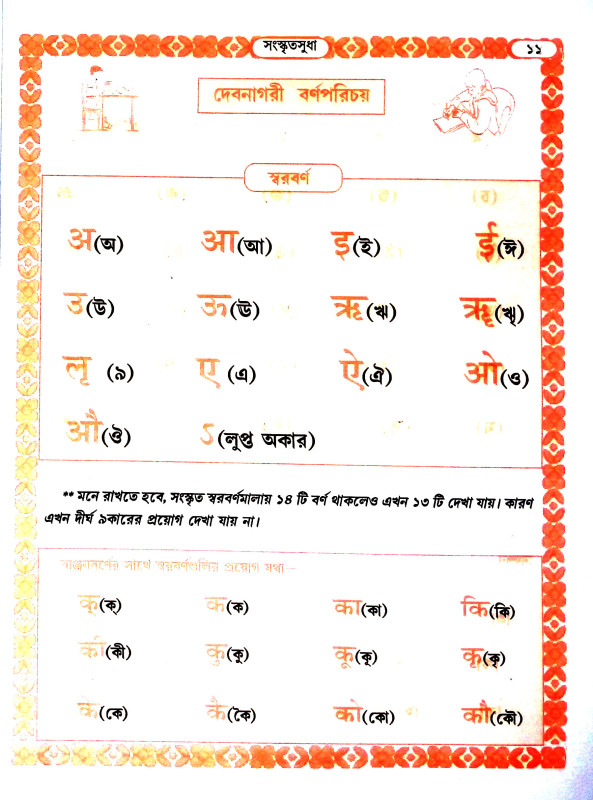 সংস্কৃতসুধা ১১
দেবনাগরী বর্ণপরিচয়
স্বরবর্ণ
अ(অ) आ(আ) इ(ই) ई(ঈ)
उ(উ) ऊ(ঊ) ऋ(ঋ) ॠ(ৠ)
लृ (৯) ए (এ) ऐ(ঐ) ओ(ও)
औ(ঔ) ऽ(লুপ্ত অকার)
** মনে রাখতে হবে, সংস্কৃত স্বরবর্ণমালায় ১৪ টি বর্ণ থাকলেও এখন ১৩ টি দেখা যায়। কারণ
এখন দীর্ঘ ৯কারের প্রয়োগ দেখা যায় না।
ব্যঞ্জনবর্ণের সাথে স্বরবর্ণগুলির প্রয়োগ যথা–
क्(ক্) क(ক) का(কা) कि(কি)
की(কী) कु(কু) कू(কূ) कृ(কৃ)
के(কে) कै(কৈ) को(কো) कौ(কৌ)